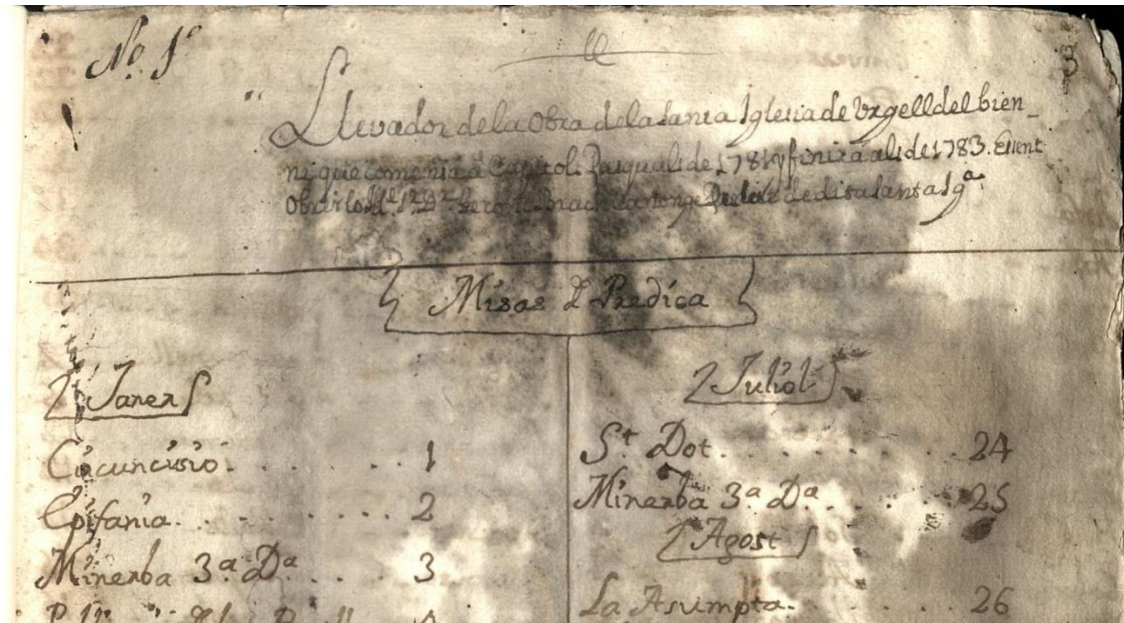 No. 1º
3
Llevador de la Obra de la Santa Iglesia de Urgell del bien-
ni que comensa â Capitol Pasqual de 1781 y finirá al de 1783. Essent
Obrer lo Canonge de dita Santa Igª.
Misas d Predica
Janer
Circuncisió. 1
Epifania. 2
Minerba 3ª. Dª 3
Juliol
St. Dot. 24
Minerba 3ª Dª. 25
Agost
La Asumpta. 26